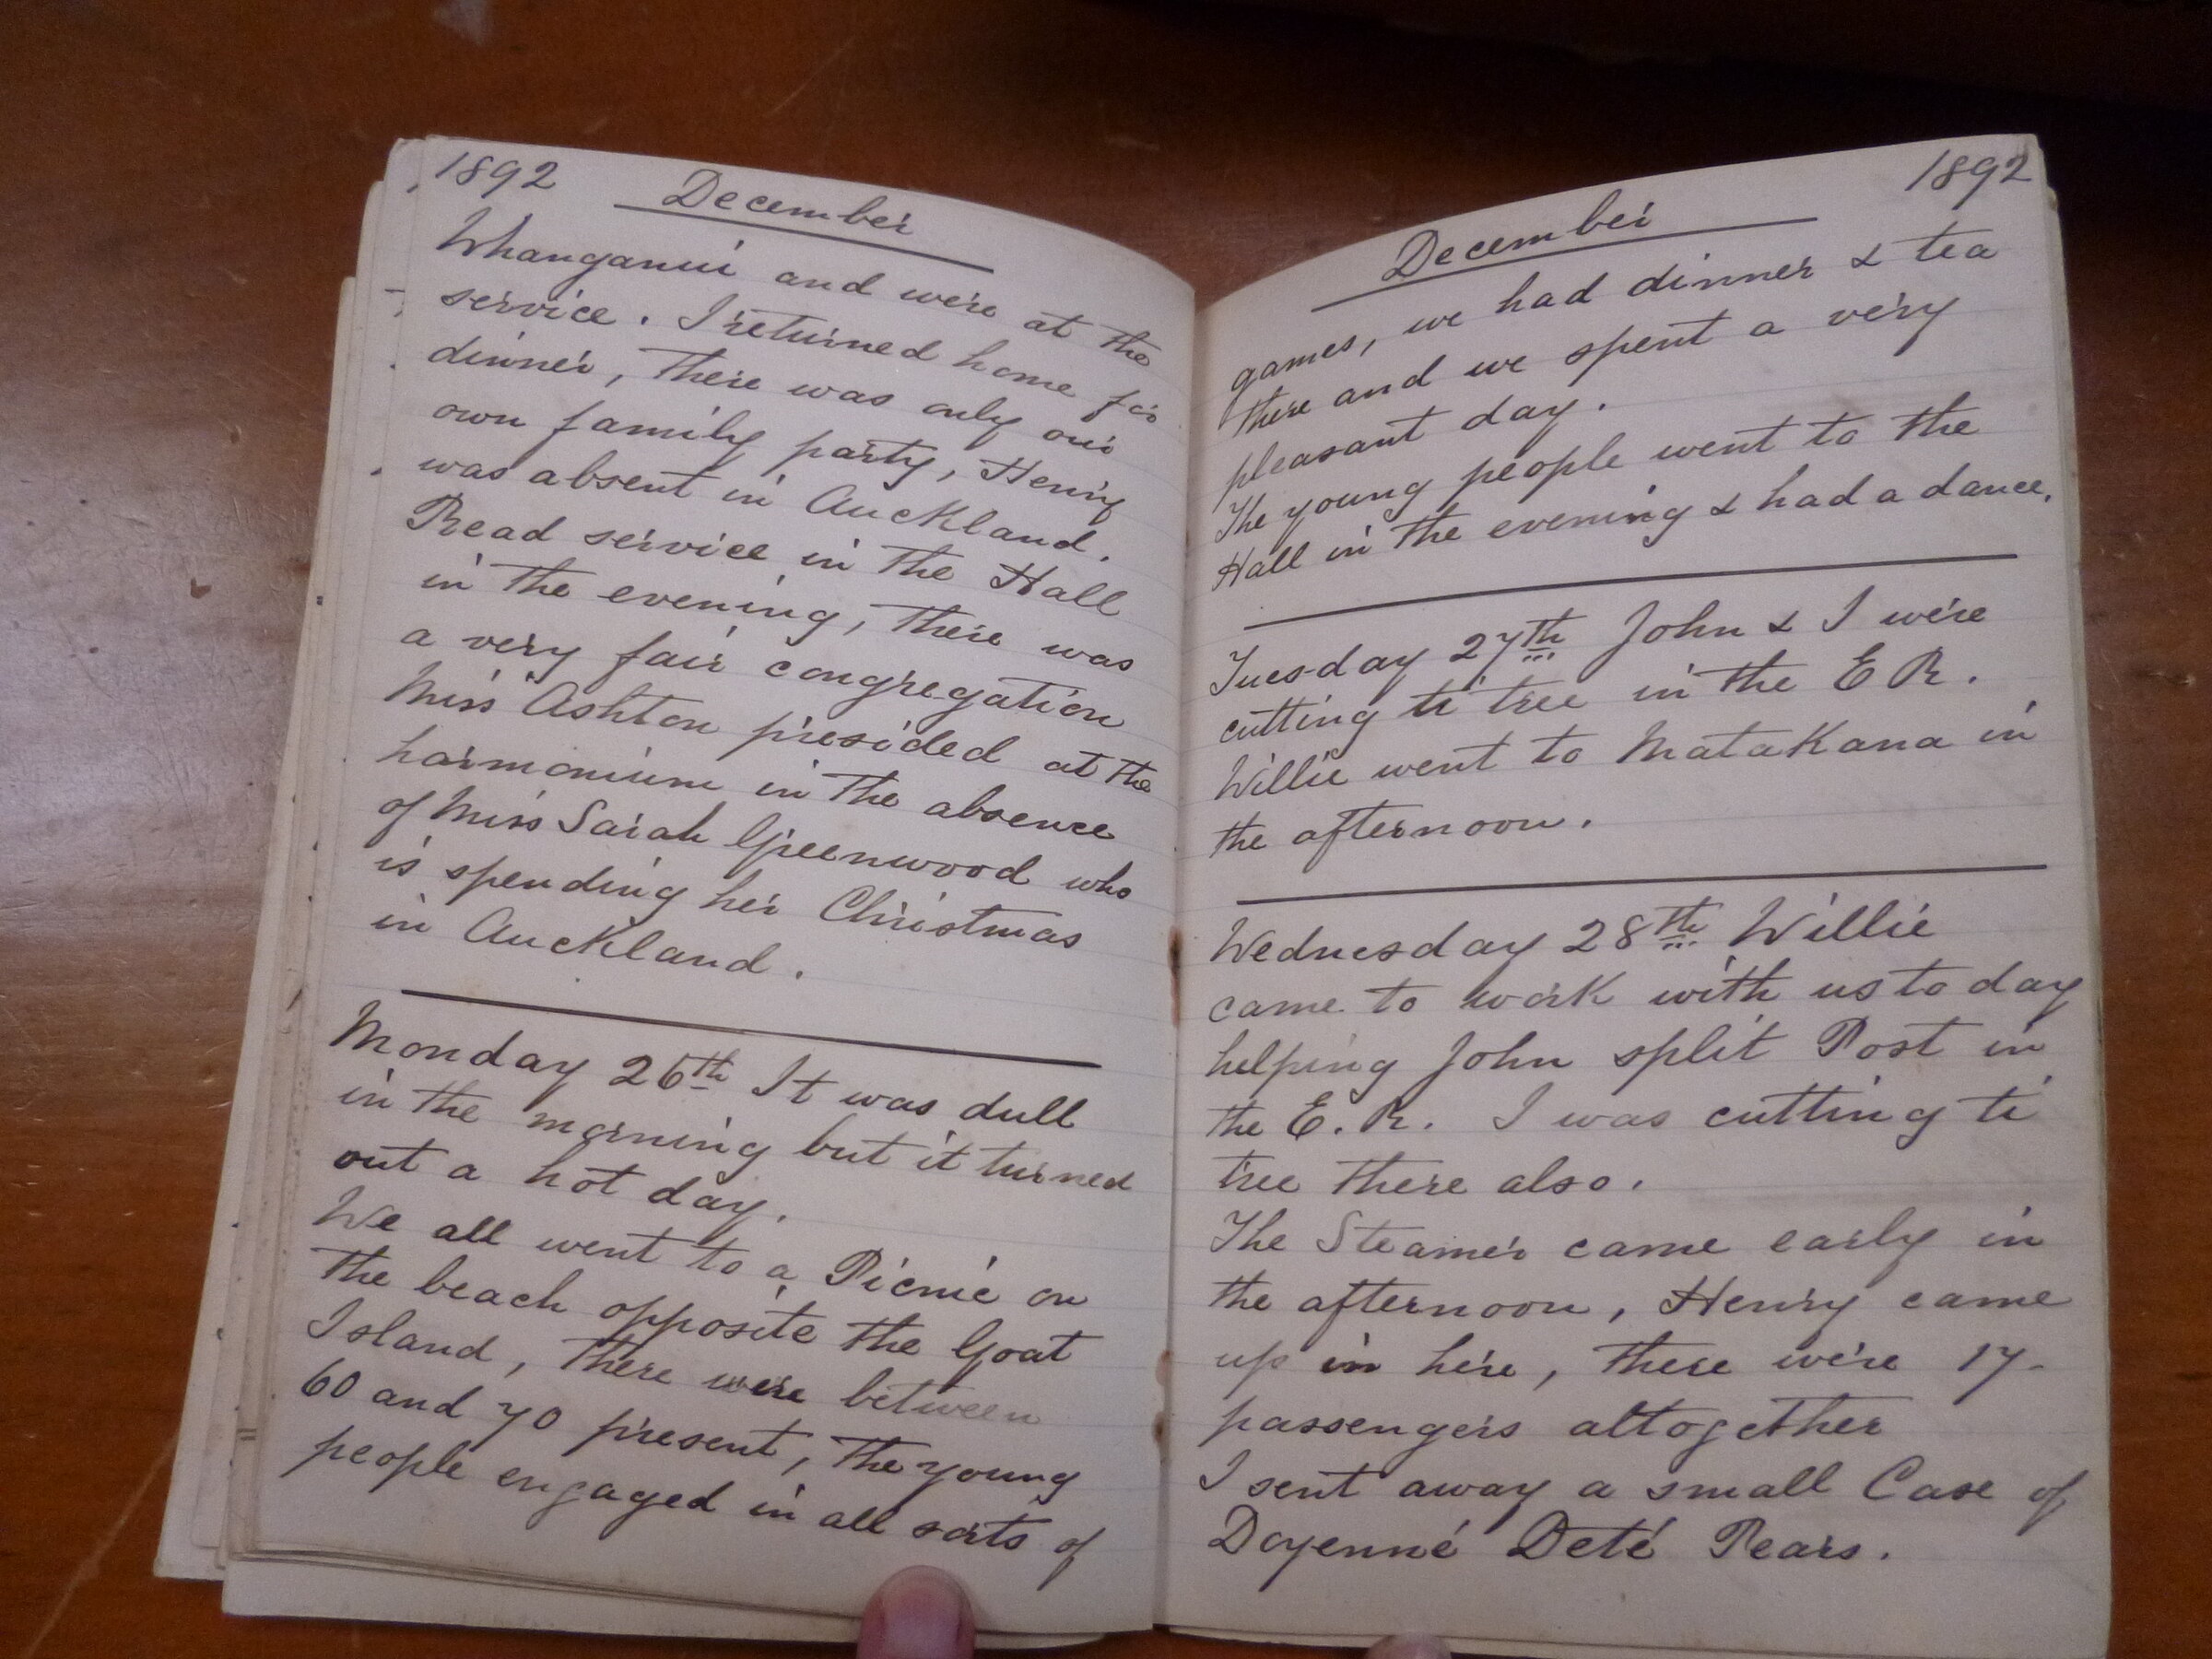 1892 December
Whanganui and were at the
service. I returned home for
dinner, there was only our
own family party, Henry
was absent in Auckland.
Read service in the Hall
in the evening, there was
a very fair congregation
Miss Ashton presided at the
harmonium in the absence
of Miss Sarah Greenwood who
is spending her Christmas
in Auckland.
Monday 26th It was dull
in the morning but it turned
out a hot day.
We all went to a Picnic on
the beach opposite the Goat
Island, there were between
60 and 70 present, the young
people engaged in all sorts of
December 1892
games, we had dinner & tea
there and we spent a very
pleasant day.
The young people went to the
Hall in the evening & had a dance.
Tuesday 27th John & I were
cutting ti tree in the E R.
Willie went to Matakana in
the afternoon.
Wednesday 28th Willie
came to work with us to day
helping John split Post in
the E. R. I was cutting ti
tree there also.
The Steamer came early in
the afternoon, Henry came
up in here, there were 17
passengers altogether
I sent away a small Case of
Doyenné Deté Pears.